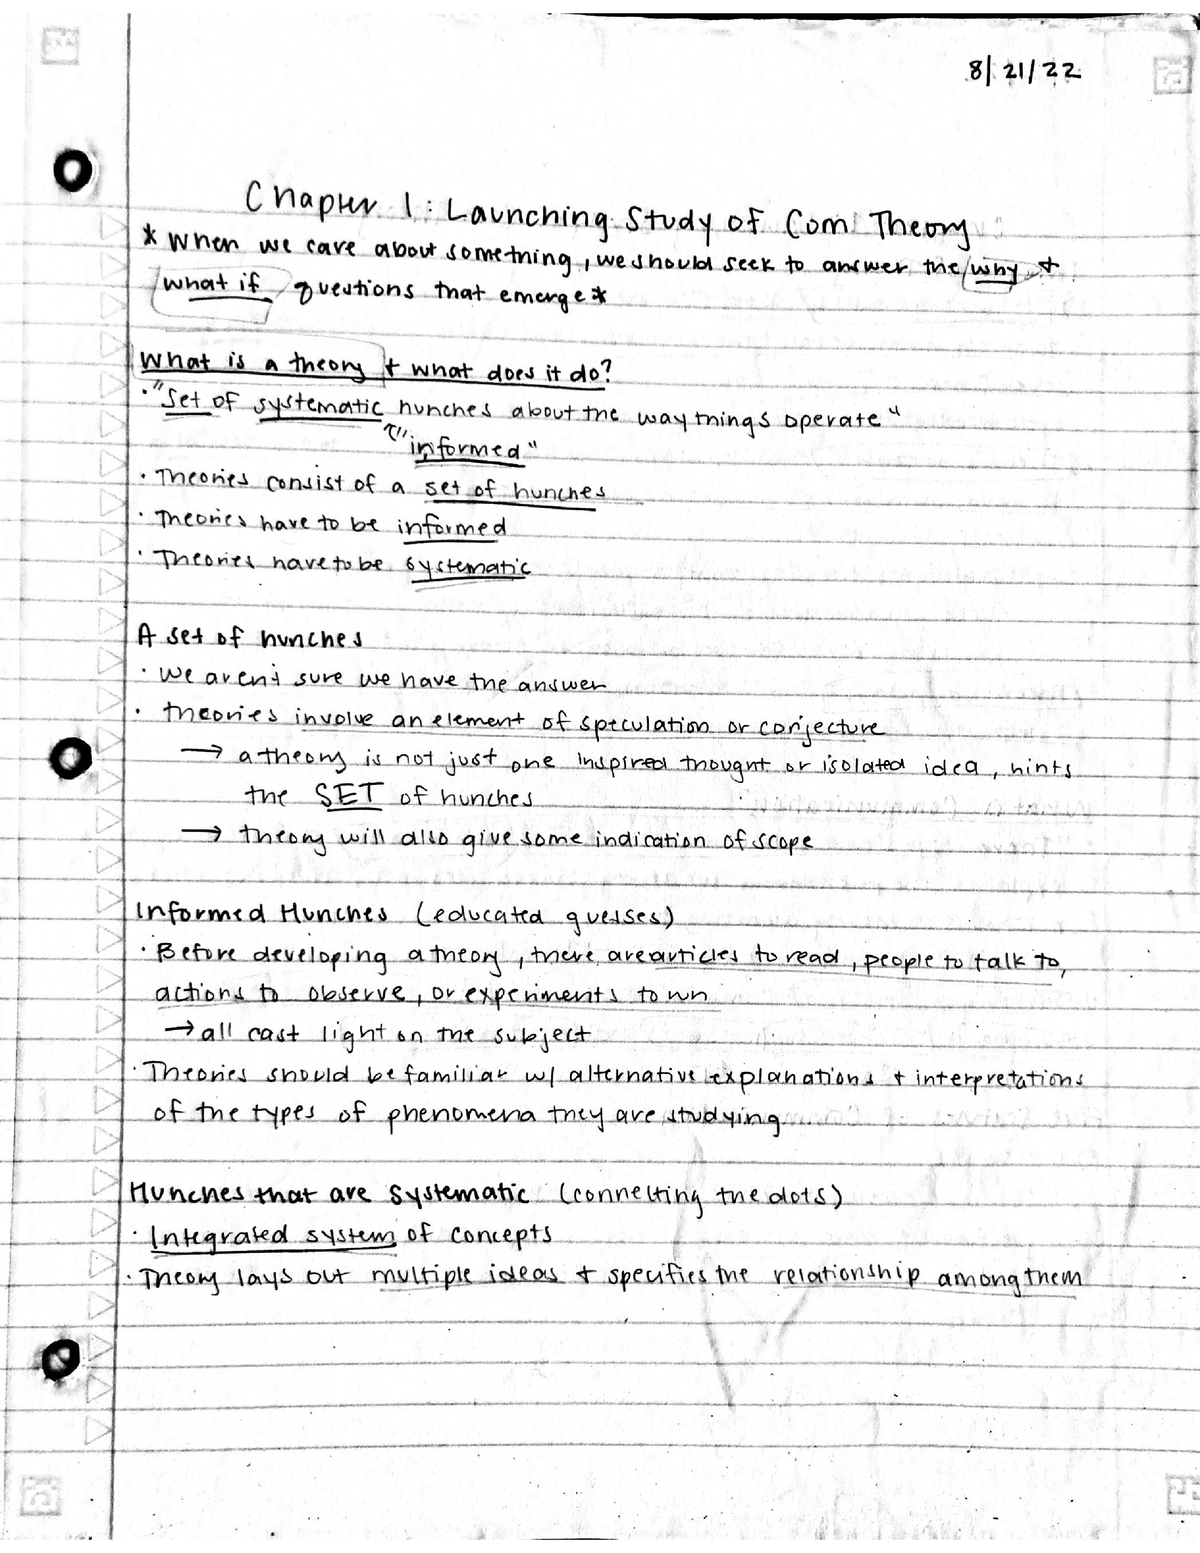 8/21/22
Chapter 1: Launching Study of Com Theory
* When we care about something, we should seek to answer the why +
what if questions that emerge *
What is a theory + what does it do?
· "Set of systematic hunches about the way things operate"
"informed"
· Theories consist of a set of hunches
· Theories have to be informed
· Theories have to be systematic
A set of hunches
· we aren't sure we have the answer
· theories involve an element of speculation or conjecture
→ a theory is not just one inspired thought or isolated idea, hints
the SET of hunches
→ theory will also give some indication of scope
Informed Hunches (educated guesses)
· Before developing a theory, there are articles to read, people to talk to,
actions to observe, or experiments to run
→ all cast light on the subject
· Theories should be familiar w/ alternative explanations + interpretations
of the types of phenomena they are studying
Hunches that are systematic (connecting the dots)
· Integrated system of concepts
· Theory lays out multiple ideas + specifies the relationship among them